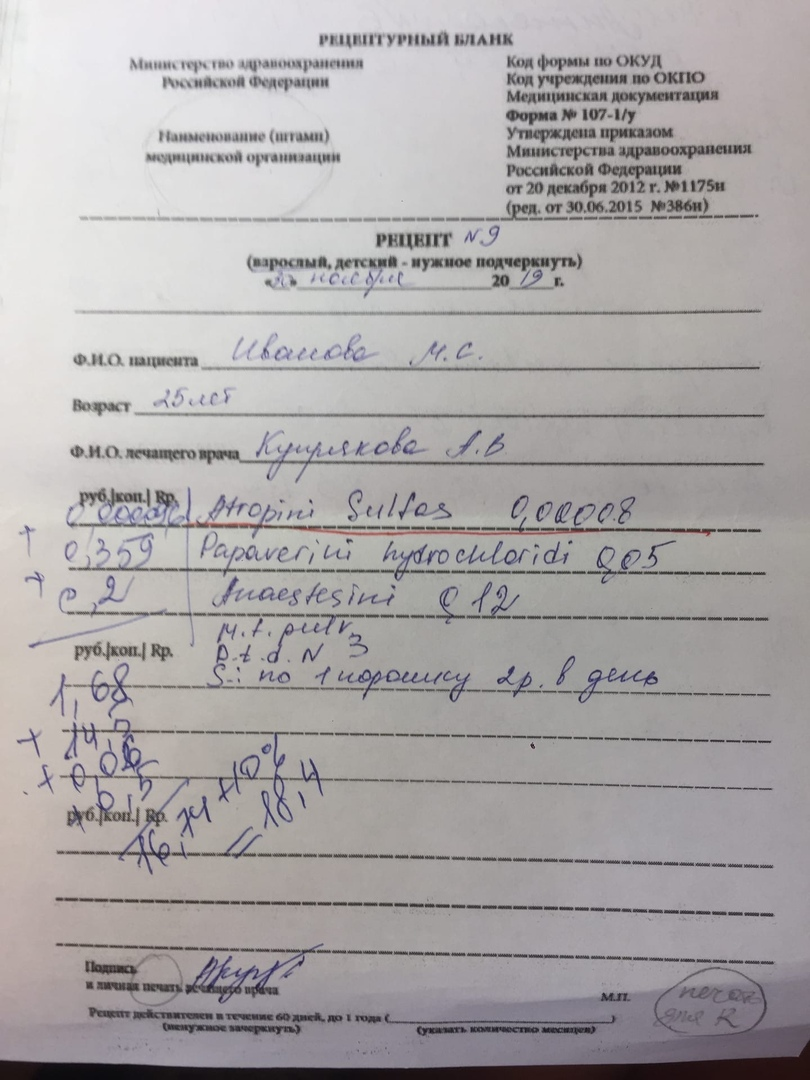 РЕЦЕПТУРНЫЙ БЛАНК
Министерство здравоохранения
Российской Федерации
Наименование (штамп)
медицинской организации
Код формы по ОКУД
Код учреждения по ОКПО
Медицинская документация
Форма № 107-1/у
Утверждена приказом
Министерства здравоохранения
Российской Федерации
от 20 декабря 2012 г. №1175н
(ред. от 30.06.2015 №386н)
РЕЦЕПТ N9
(взрослый, детский - нужное подчеркнуть)
ноября 2019 г.
Ф.И.О. пациента Иванова М.С.
Возраст 25 лет
Ф.И.О. лечащего врача Купрякова А.В
руб.|коп.| Rp.
Atropini Sulfas 0,00008
+ 0,359 Papaverini hydrochloridi 0,05
+ 0,2 Anaestesini 0,12
M.f. pulv
руб.|коп.| Rp. D.t.d. N 3
1,68 S.: по 1 порошку 2р. в день
+ 14,5
+ 0,06
руб.|коп.| Rp. 0,5
16,74 +10% = 18,4
Подпись
и личная печать лечащего врача
М.П.
печать
для R
Рецепт действителен в течение 60 дней, до 1 года (
)
(ненужное зачеркнуть) (указать количество месяцев)